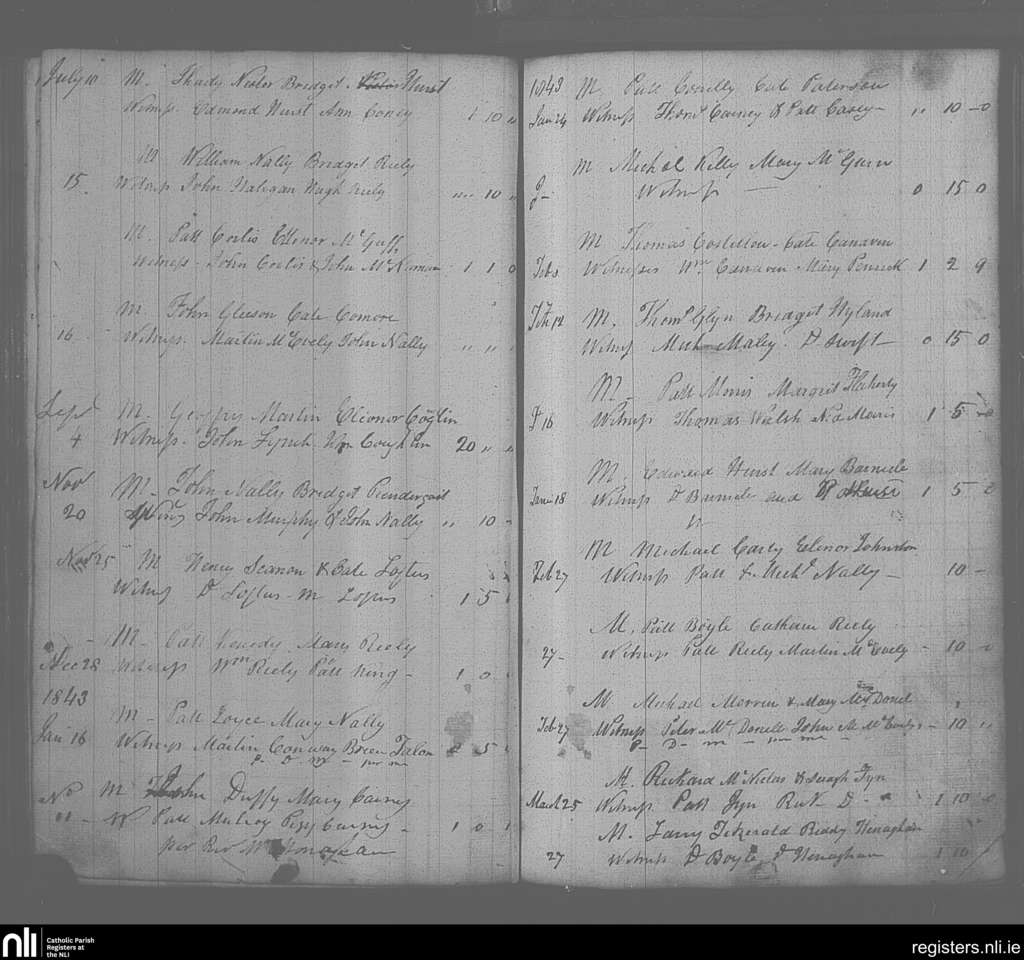 July 10 M. Thady Nestor Bridget Hurst
Witness Edmond Hurst Ann Coney 1 10 "
M William Nally Bridget Reily
15 Witness John Halegan Hugh Reily " 10 "
M. Patt Corlis Ellenor McGuff
Witness John Corlis & John McKernan 1 1 0
M John Gleeson Cate Comore
16 Witness Martin McEvely John Nally " " "
Sepr M. Martin Eleonor
4 Witness John Lynch Wm Coughlin 20 " "
Nov M. John Nally Bridget Prendergast
20 John Murphy & John Nally " 10 "
Nov 25 M Henry Scanon & Cate Loftus
Witness D Loftus M Loftus 1 5
M Patt Kenedy Mary Reely
Dec 28 Witness Wm Reely Patt King 1 0
1843
M Patt Joyce Mary Nally
Jan 16 Witness Martin Conway 5
M John Duffy Mary Carney
11 W Patt Mulroy Peggy Carney 1 0
per Rev Mr Monaghan
1843 M Patt Connelly Cate Paterson
Jan 24 Witness Thos Carney & Patt Casey " 10 0
M Michal Kelly Mary McGurn
Witness 0 15 0
M Thomas Costellou Cate Canavan
Feb Witnesses Wm Canavan Mary Pennick 1 2 9
Feb 12 M. Thoms Glyn Bridget Hyland
Witness Mich Maley. D Swift 0 15 0
M Patt Morris Margret Flaherty
D 16 Witness Thomas Walsh Morris 1 5 0
M Edward Hurst Mary Barnicle
18 Witness D Barnicle and 1 5 0
M Michael Carty Elenor Johnston
Feb 27 Witness Patt & Michl Nally 10
M. Patt Boyle Catherin Reely
27 Witness Patt Reely Martin McEvely 10
M Michael Merren & Mary McDonel
Feb 27 Witness Peter McDonell John M McEvely 10
P D m
M. Richard McNiclas & Seragh Fyn
March 25 Witness Patt Fyn Rick D 1 10 0
M. Larry Biddy Henaghan
27 Witness D Boyle D Henaghan 1 10
nli
Catholic Parish
Registers at
the NLI
registers.nli.ie